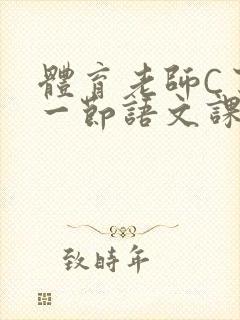 體育老師C
一節語文課
致時年